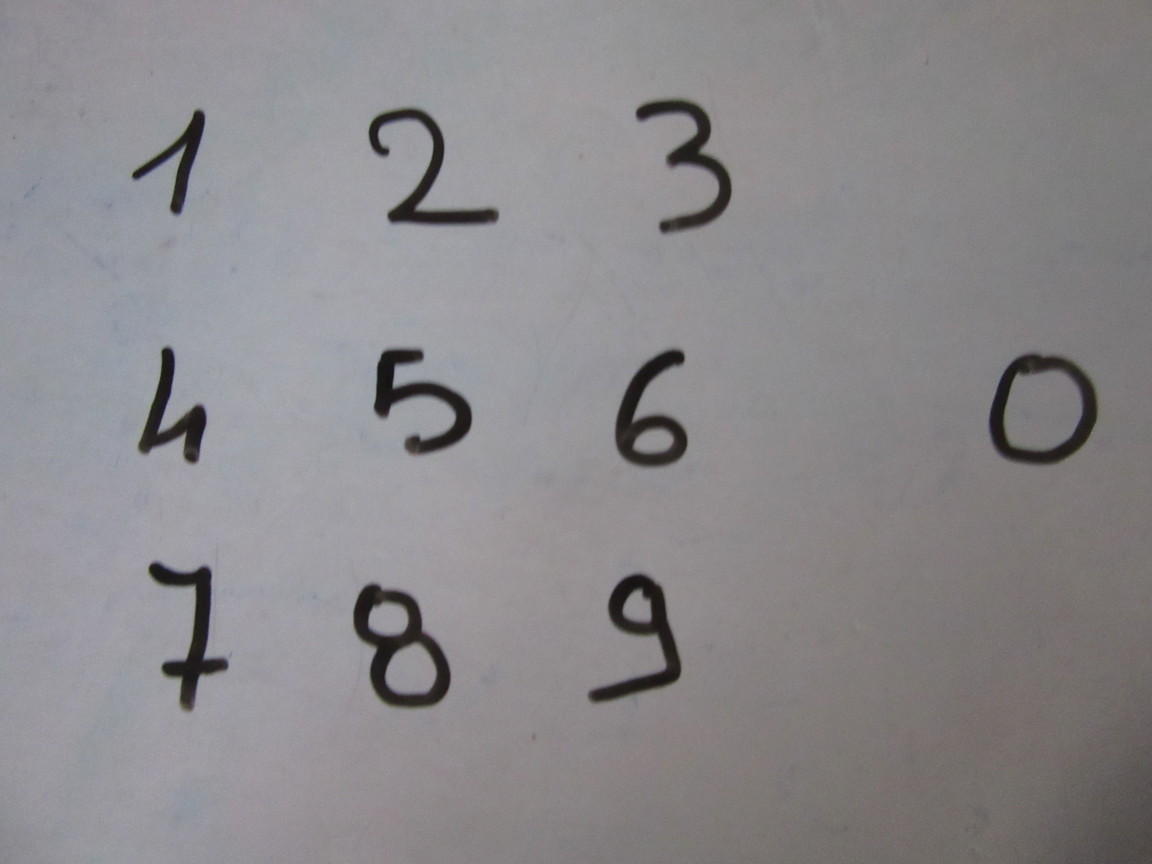 1 2 3
4 5 6 0
7 8 9